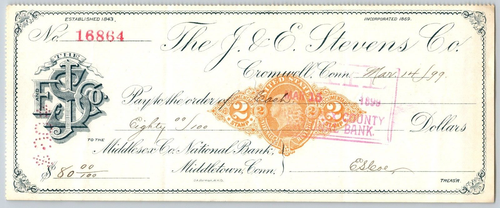 ESTABLISHED 1843. INCORPORATED 1869.
No. 16864 The J. & E. Stevens Co.
Cromwell, Conn., Mar. 14/99.
Pay to the order of Cash
2 2
MAR 16 1899
COUNTY
BANK
Eighty 00/100 Dollars
TO THE
Middlesex Co. National Bank,
Middletown, Conn.
$80 00/100
TREAS'R.